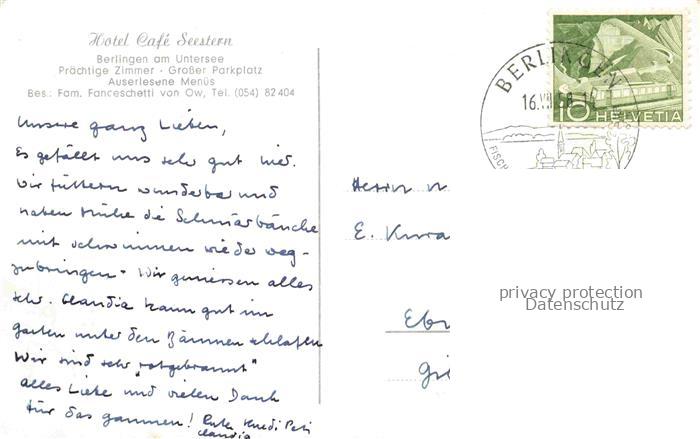 Hotel Café Seestern
Berlingen am Untersee
Prächtige Zimmer · Großer Parkplatz
Auserlesene Menüs
Bes.: Fam. Fanceschetti von Ow, Tel. (054) 82 404
Unsere ganz Lieben,
Es gefällt uns sehr gut hier.
Wir füttern wunderbar und
haben Mühe die Schmärbäuche
mit schwimmen wieder weg-
zubringen. Wir geniessen alles
sehr. Claudia kann gut im
Garten unter den Bäumen schlafen
Wir sind sehr "rotgebrannt"
alles Liebe und vielen Dank
für das gaumen! Ruedi Peti
Claudia
BERLINGEN
16.VII.68
FISCH
10 HELVETIA
Herrn
E.
Ebn
privacy protection
Datenschutz